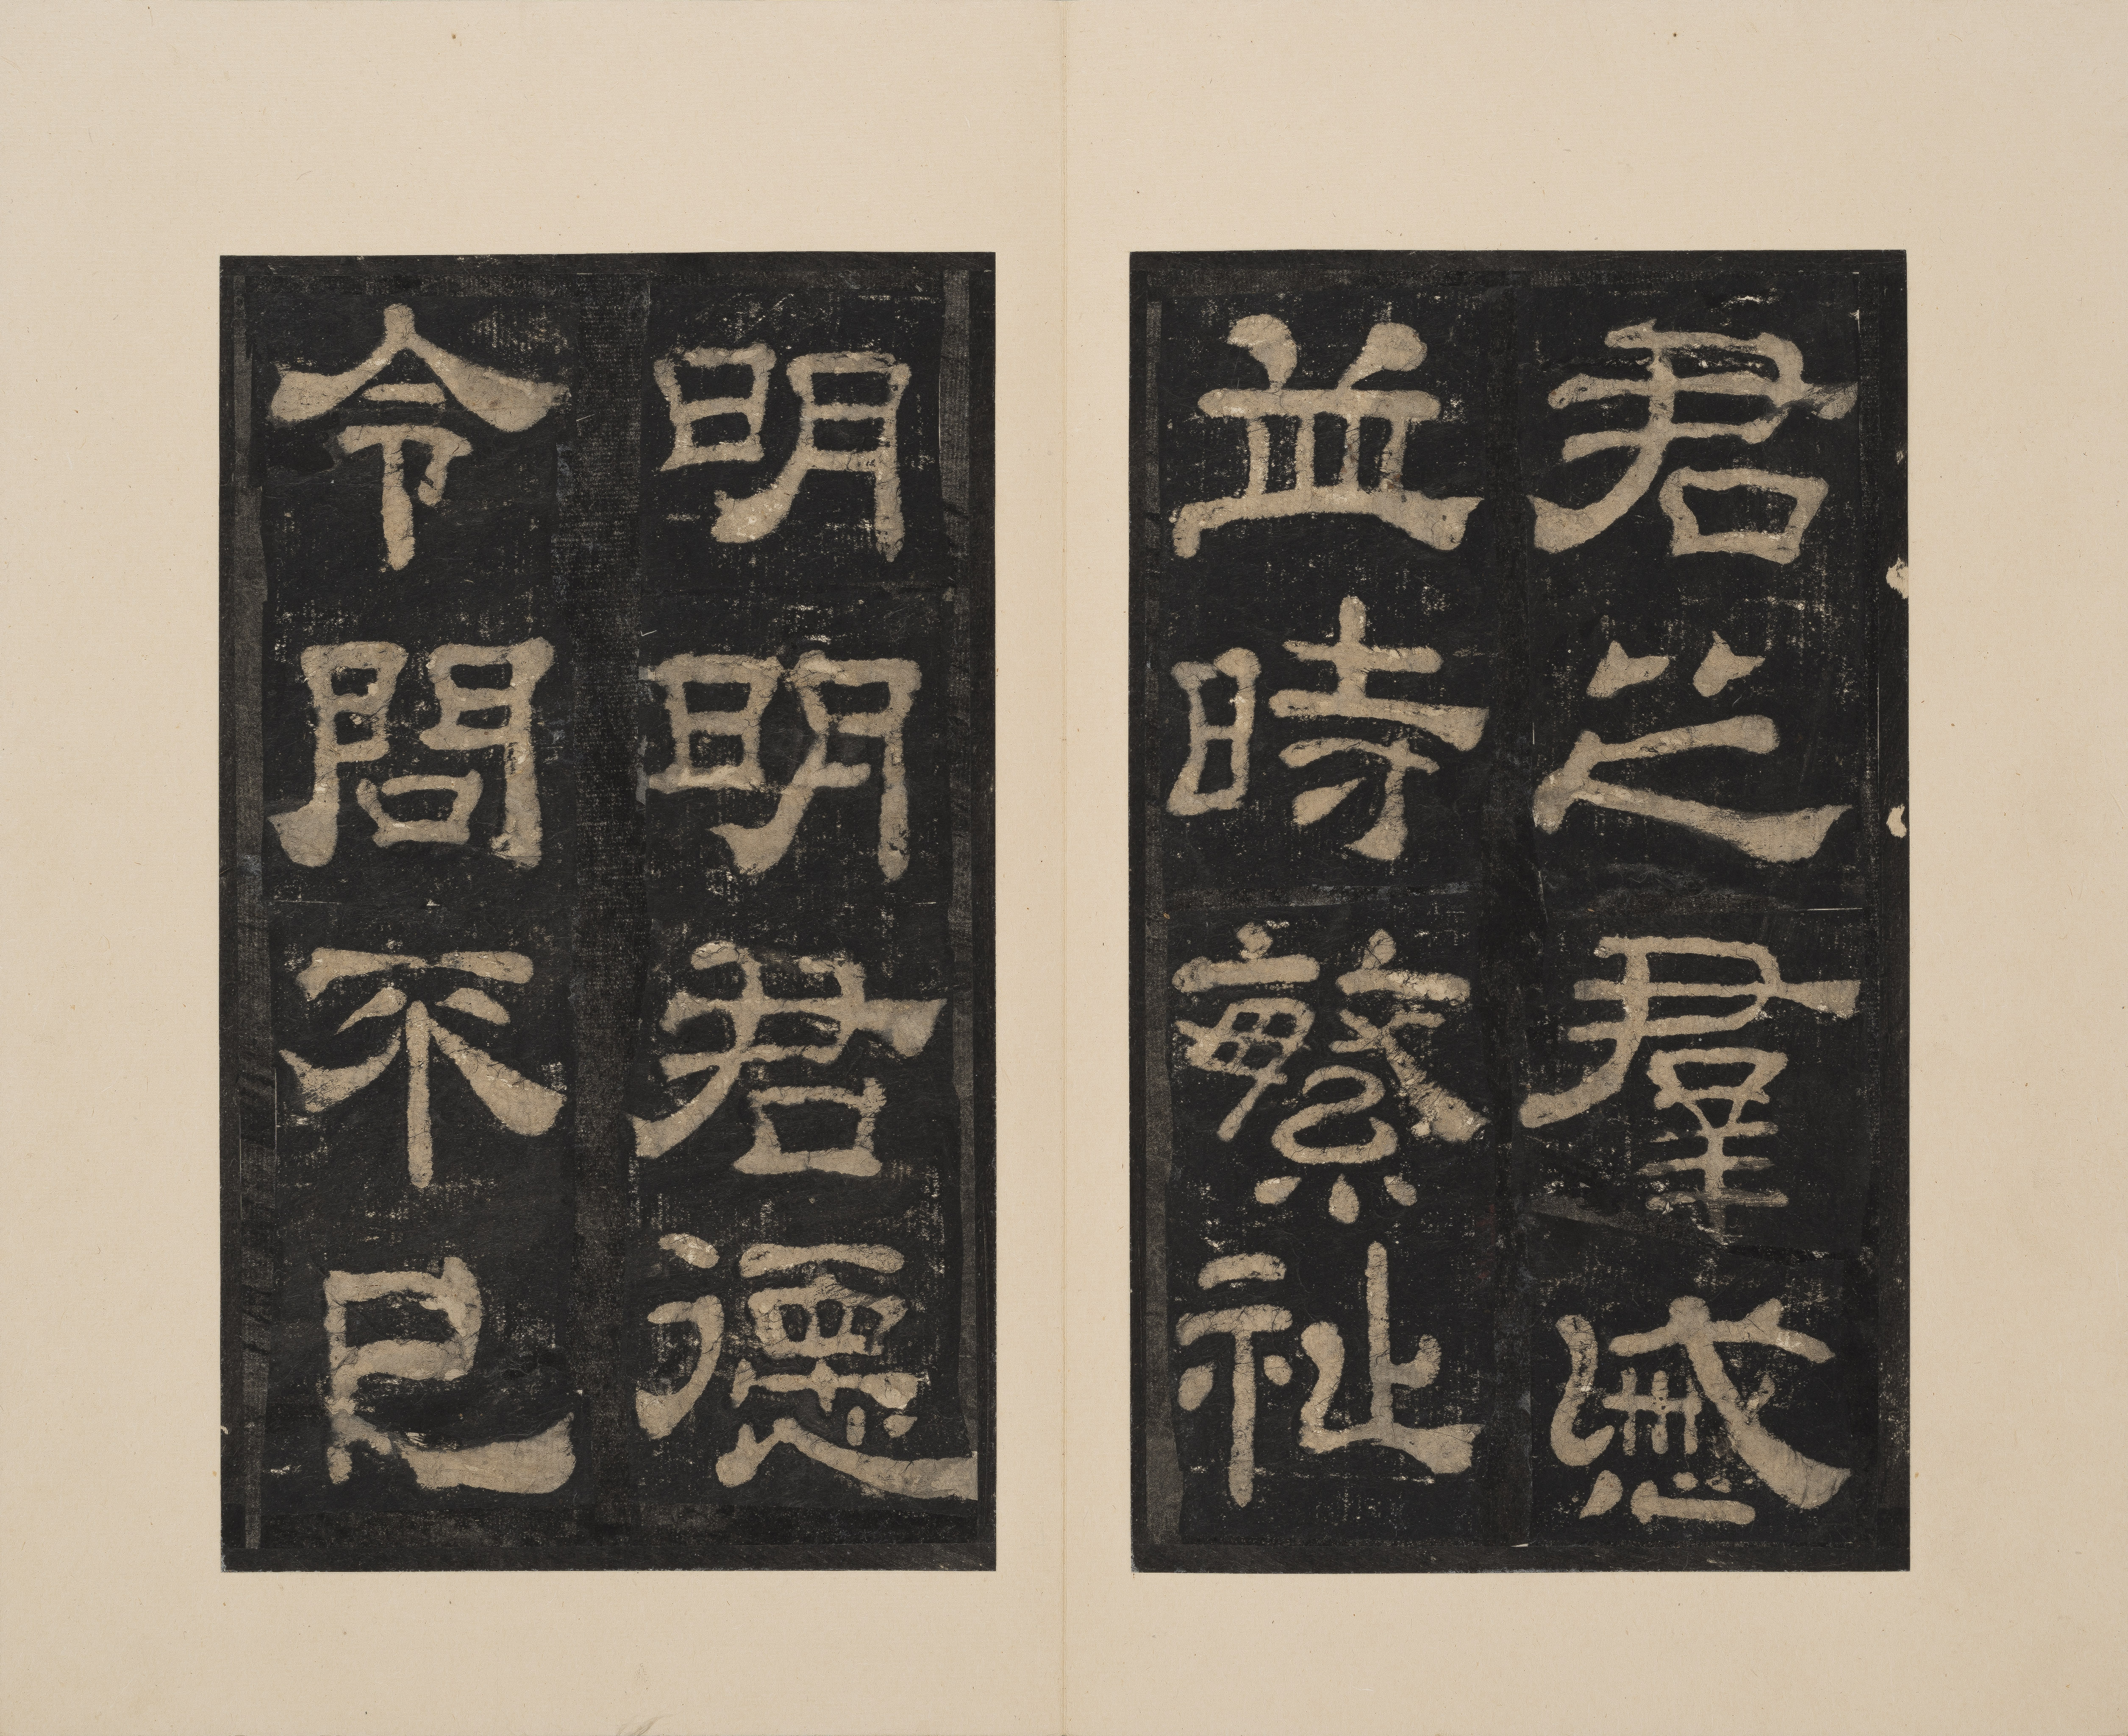 君之羣慼
並時繁祉
明明君德
令問不已